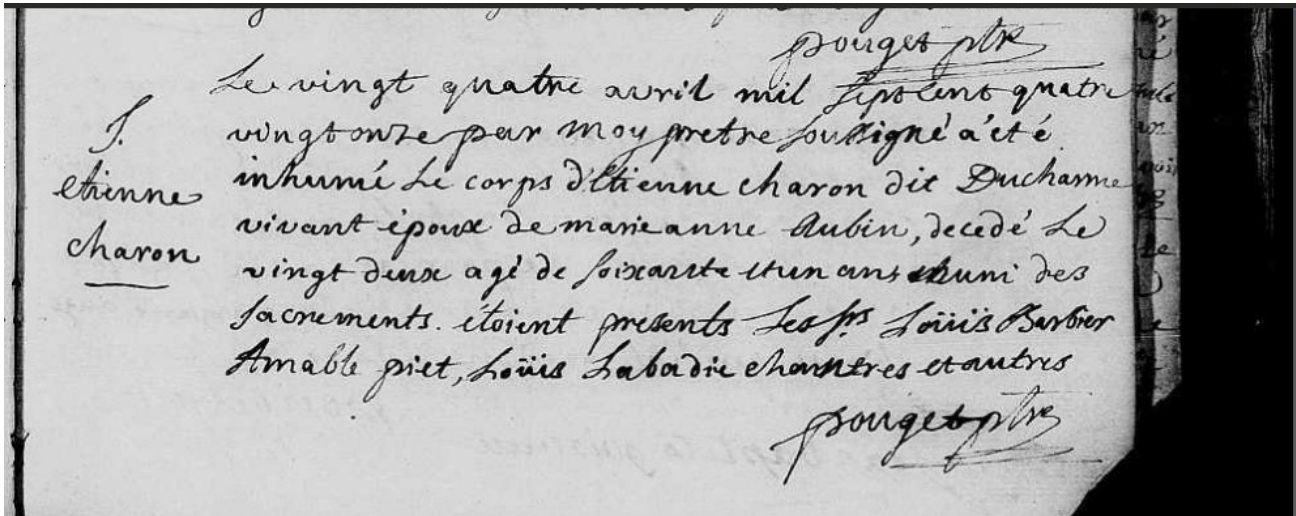 pouget ptre
Le vingt quatre avril mil Sept cent quatre
vingt onze par moy pretre soussigné a été
inhumé Le corps d'Etienne charon dit Ducharme
vivant époux de marie anne Aubin, decedé Le
vingt deux agé de soixante et un ans muni des
sacrements. étoient presents Les srs Loüis Barbier
Amable piet, Loüis Labadie chantres et autres
pouget ptre
S.
etienne
charon